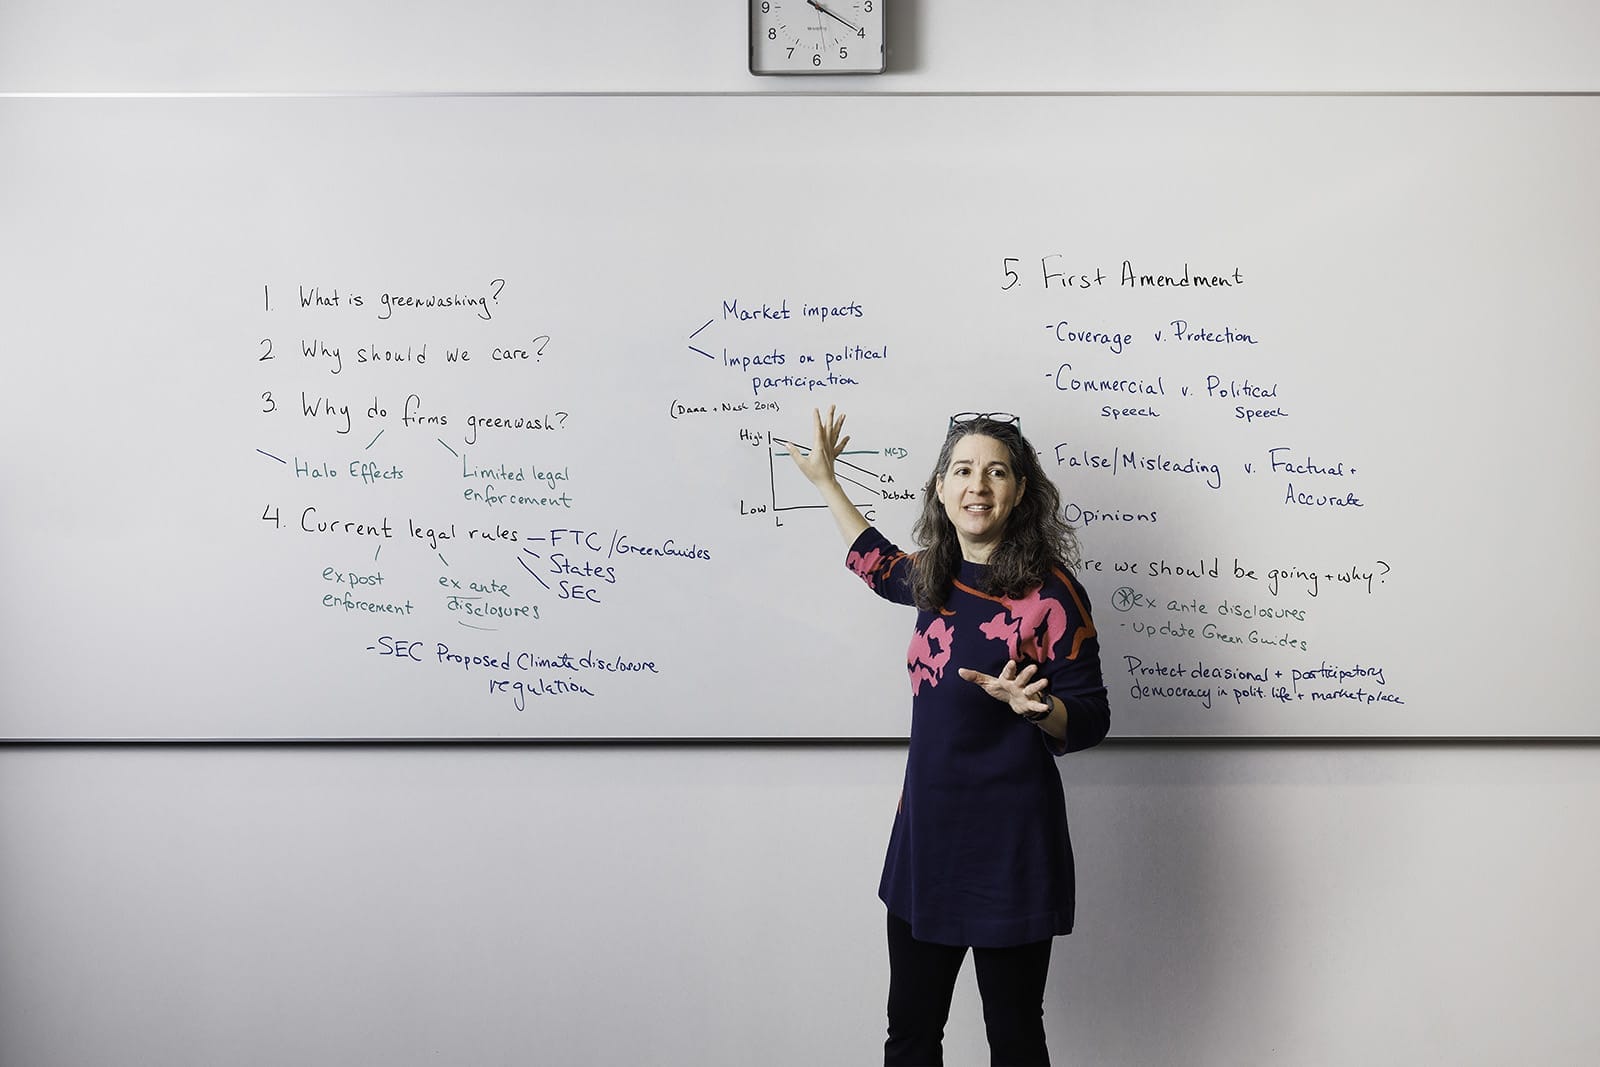 9 3
8 4
7 6 5
1. What is greenwashing?
2 Why should we care?
3. Why do firms greenwash?
Halo Effects
Limited legal
enforcement
4. Current legal rules – FTC/GreenGuides
States
SEC
ex post
enforcement
ex ante
disclosures
-SEC Proposed Climate disclosure
regulation
Market impacts
Impacts on political
participation
(Dana + Nash 2019)
High
MCD
CA
Debate
Low
L C
5. First Amendment
-Coverage v. Protection
-Commercial v. Political
Speech Speech
- False/Misleading v. Factual +
Accurate
Opinions
re we should be going + why?
* ex ante disclosures
- update Green Guides
Protect decisional + participatory
democracy in polit. life + marketplace